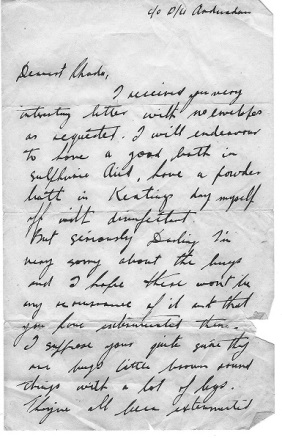 c/o P/O
Dearest Rhoda,
I received your very
interesting letter with no envelopes
as requested. I will endeavour
to have a good bath in
Acid, have a powder
bath in Keatings dry myself
off with disinfectant
But seriously Darling I'm
very sorry about the bugs
and I hope there wont be
any of it and that
you have exterminated them.
I suppose your quite sure they
are bugs little brown round
things with a lot of legs.
all been exterminated